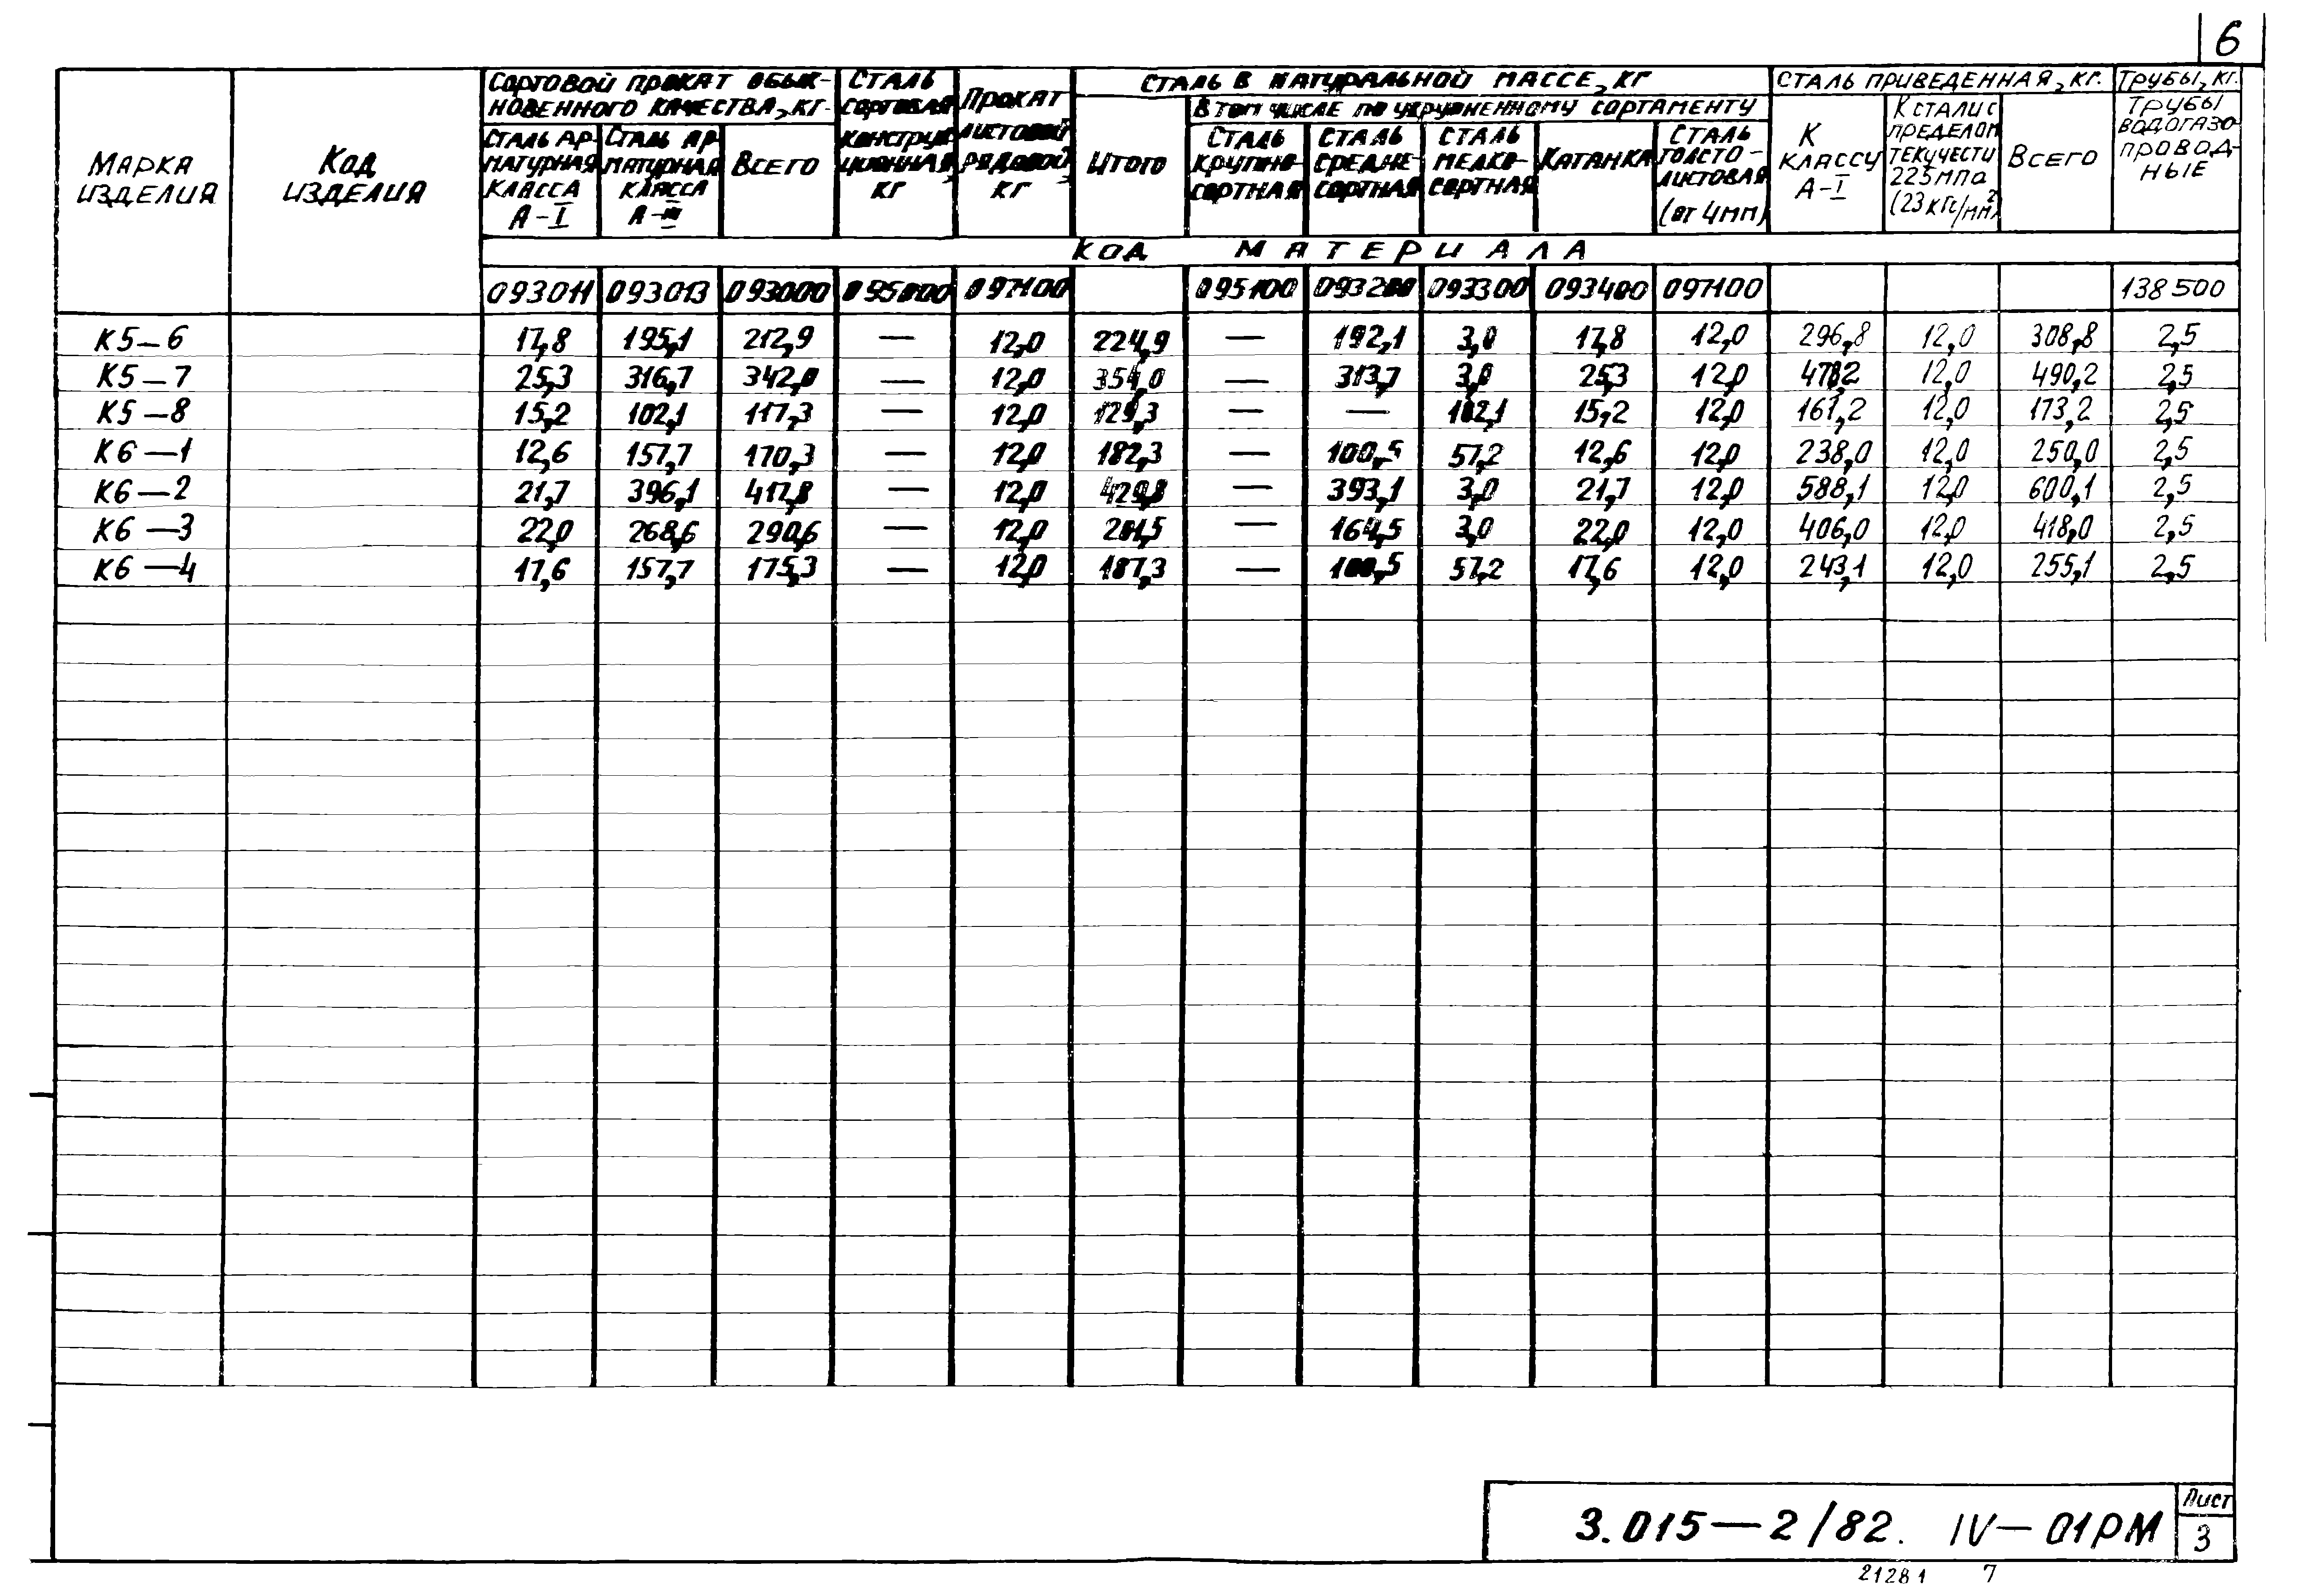 6
Сортовой прокат обык-
новенного качества, кг.
Сталь
сортовая
конструк
ционная,
кг
Прокат
листовой
рядовой,
кг
Сталь в натуральной массе, кг
Сталь приведенная, кг.
Трубы, кг.
Марка
изделия
Код
изделия
Сталь ар-
матурная
класса
А-I
Сталь ар
матурная
класса
А-III
Всего
Итого
В том числе по укрупненному сортаменту
Сталь
крупно-
сортная
Сталь
средне-
сортная
Сталь
мелко-
сортная
Катанка
Сталь
толсто-
листовая
(от 4мм)
К
классу
А-I
К стали с
пределом
текучести
225 мпа
(23 кгс/мм²)
Всего
Трубы
водогазо
провод-
ные
Код материала
093011 093013 093000 095000 097100 095100 093200 093300 093400 097100 138500
К5-6 17,8 195,1 212,9 — 12,0 224,9 — 192,1 3,0 17,8 12,0 296,8 12,0 308,8 2,5
К5-7 25,3 316,7 342,0 — 12,0 354,0 — 313,7 3,0 25,3 12,0 478,2 12,0 490,2 2,5
К5-8 15,2 102,1 117,3 — 12,0 129,3 — — 102,1 15,2 12,0 161,2 12,0 173,2 2,5
К6-1 12,6 157,7 170,3 — 12,0 182,3 — 100,5 57,2 12,6 12,0 238,0 12,0 250,0 2,5
К6-2 21,7 396,1 417,8 — 12,0 429,8 — 393,1 3,0 21,7 12,0 588,1 12,0 600,1 2,5
К6-3 22,0 268,6 290,6 — 12,0 — 164,5 3,0 22,0 12,0 406,0 12,0 418,0 2,5
К6-4 17,6 157,7 175,3 — 12,0 187,3 — 100,5 57,2 17,6 12,0 243,1 12,0 255,1 2,5
3.015-2/82. IV-01РМ
Лист
3
21281 7